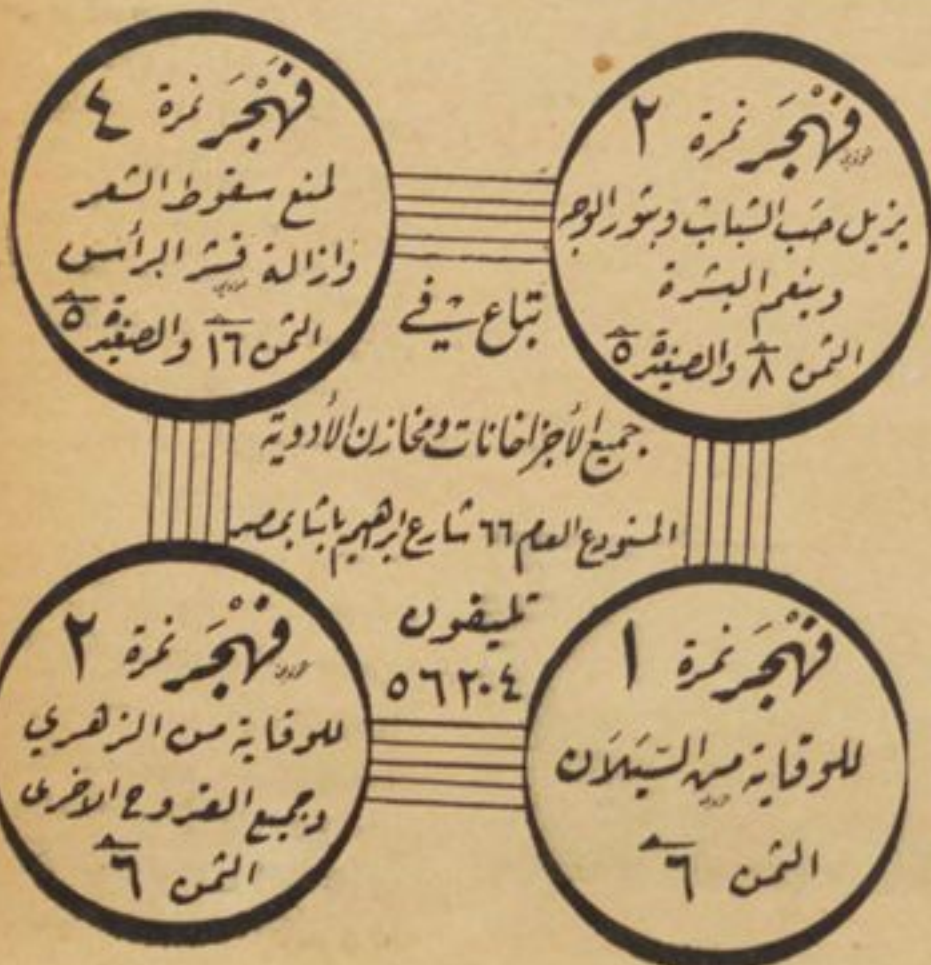 فَهْجَر نمرة ٢
يزيل حَب الشباب وبثور الوجه
وينعم البشرة
الثمن ٨ والصغيرة ٥
فَهْجَر نمرة ٤
لمنع سقوط الشعر
وازالة قشر الرأس
الثمن ١٦ والصغيرة ٥
تباع في
جميع الأجزاخانات ومخازن الأدوية
المستودع العام ٦٦ شارع ابراهيم باشا بمصر
تليفون
٥٦٢٠٤
فَهْجَر نمرة ١
للوقاية من السَيَلَان
الثمن ٦
فَهْجَر نمرة ٢
للوقاية من الزهري
وجميع القروح الاخرى
الثمن ٦